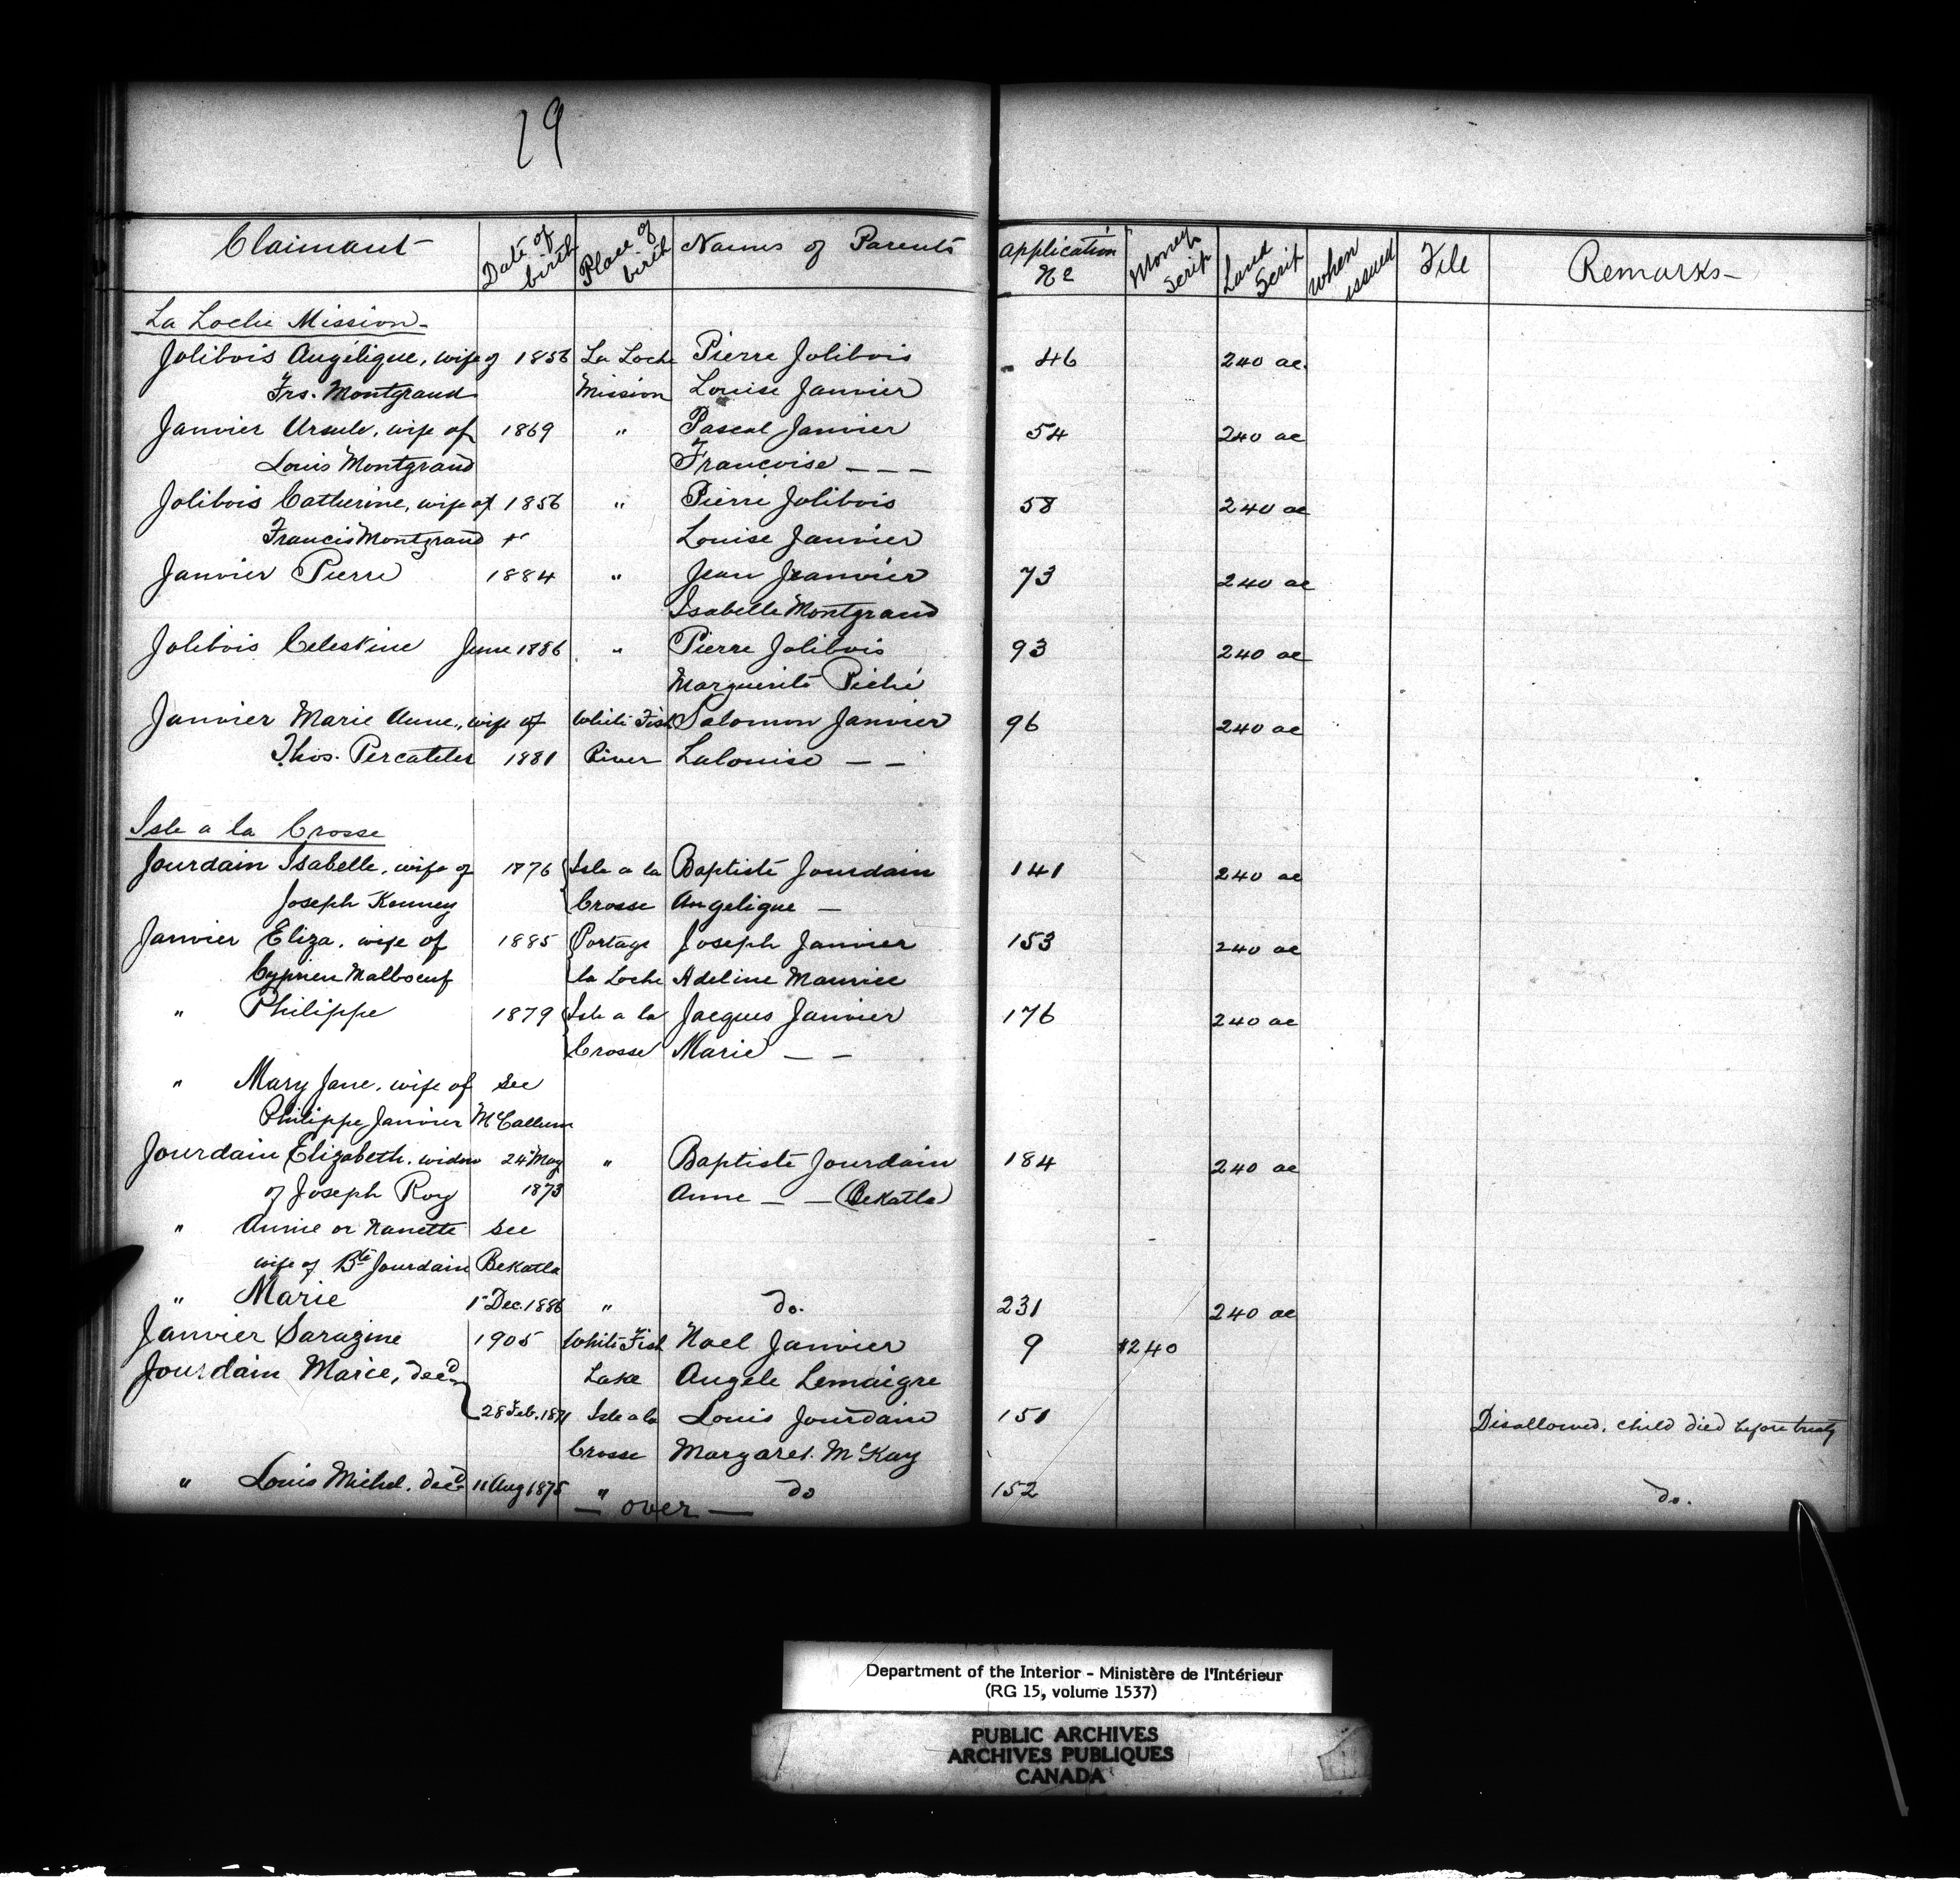 19
Claimant Date of birth Place of birth Names of Parents Application No Money Scrip Land Scrip When issued File Remarks
La Loche Mission
Jolibois Angélique, wife of 1856 La Loche Pierre Jolibois 46 240 ac.
Frs. Montgrand Mission Louise Janvier
Janvier Ursule, wife of 1869 " Pascal Janvier 54 240 ac
Louis Montgrand Francoise — — —
Jolibois Catherine, wife of 1856 " Pierre Jolibois 58 240 ac
Francis Montgrand Louise Janvier
Janvier Pierre 1884 " Jean Jeanvier 73 240 ac
Isabelle Montgrand
Jolibois Celestine June 1886 " Pierre Jolibois 93 240 ac
Marguerite Piché
Janvier Marie Anne, wife of White Fish Salomon Janvier 96 240 ac
Thos. Percatler 1881 River Lalouise — —
Isle a la Crosse
Jourdain Isabelle, wife of 1876 Isle a la Baptiste Jourdain 141 240 ac
Joseph Kenney Crosse Angelique —
Janvier Eliza, wife of 1885 Portage Joseph Janvier 153 240 ac
Cyprien Malboeuf la Loche Adeline Maurice
" Philippe 1879 Isle a la Jacques Janvier 176 240 ac
Crosse Marie — —
" Mary Jane, wife of see
Philippe Janvier McCallum
Jourdain Elizabeth, widow 24 May " Baptiste Jourdain 184 240 ac
of Joseph Roy 1873 Anne — — (Bekatla)
" Annie or Nanette see
wife of Bte Jourdain Bekatla
" Marie 1st Dec. 1886 " do. 231 240 ac
Janvier Sarazine 1905 White Fish Noel Janvier 9 $240
Jourdain Marie, decd Lake Angele Lemaigre
28 Feb. 1871 Isle a la Louis Jourdain 151 Disallowed. child died before treaty
Crosse Margaret McKay
" Louis Michel, decd 11 Aug 1875 " do 152 do.
— over —
Department of the Interior - Ministère de l'Intérieur
(RG 15, volume 1537)
PUBLIC ARCHIVES
ARCHIVES PUBLIQUES
CANADA